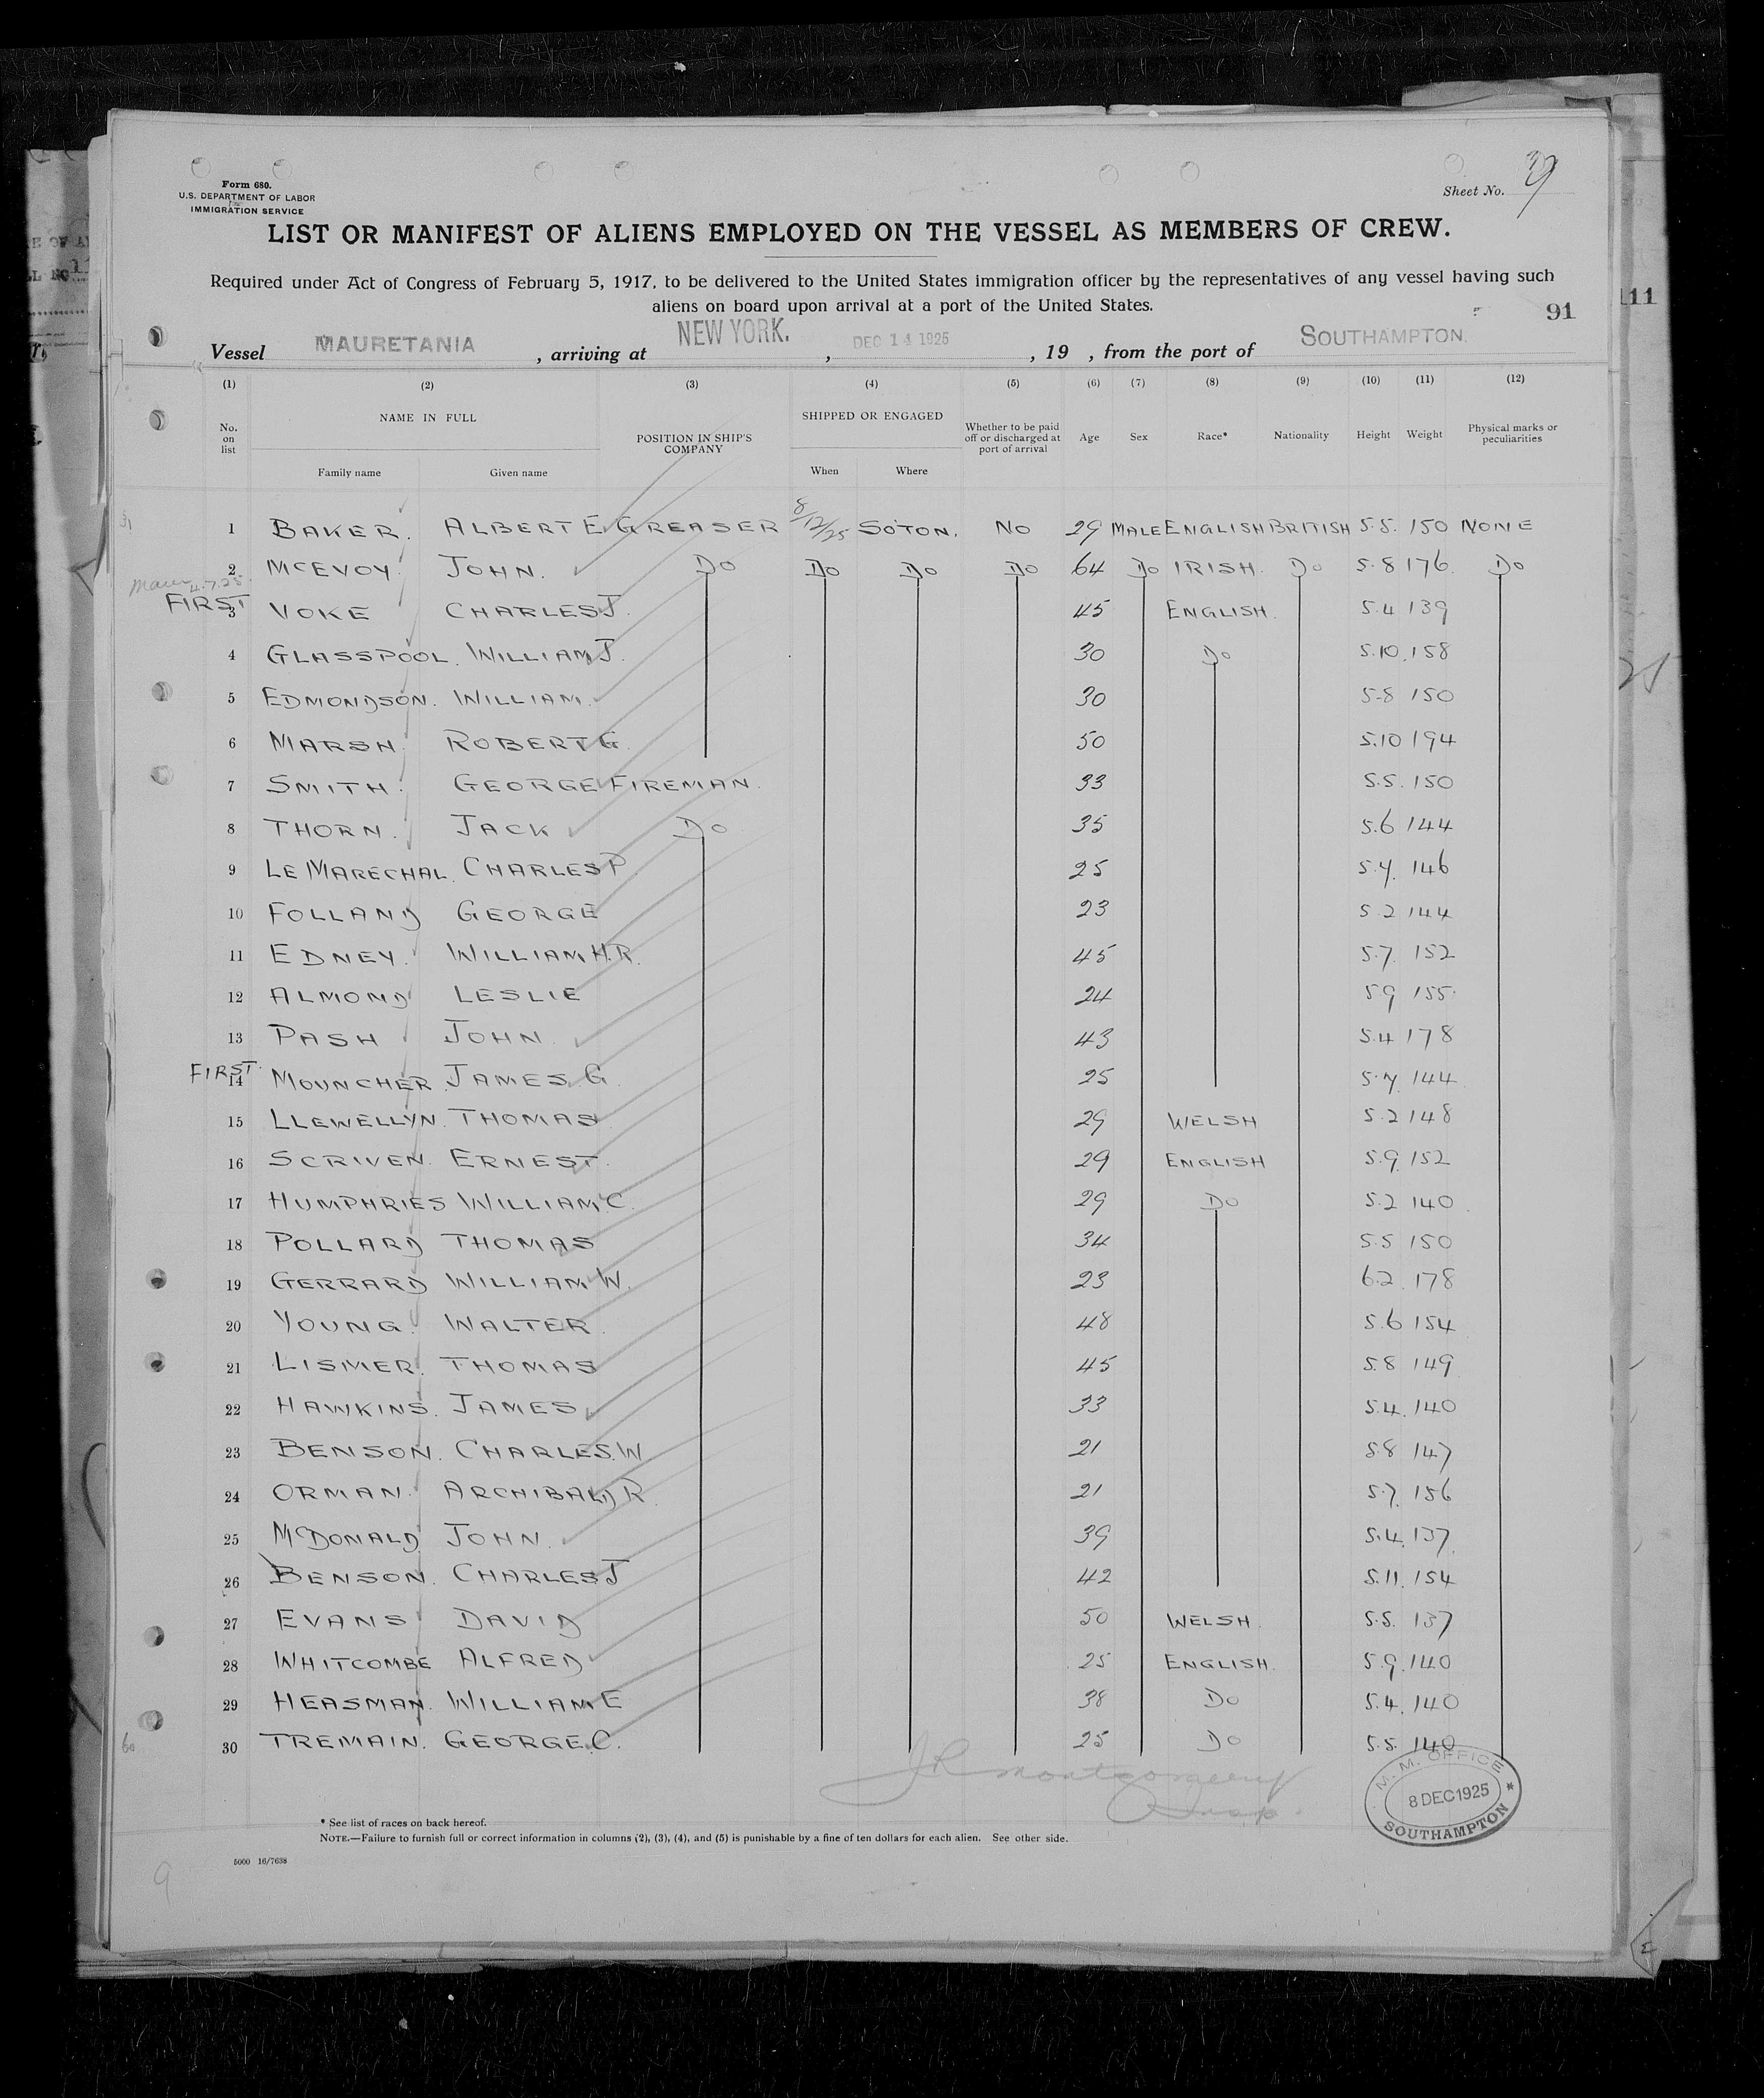 Form 680.
U.S. DEPARTMENT OF LABOR
IMMIGRATION SERVICE
Sheet No.
LIST OR MANIFEST OF ALIENS EMPLOYED ON THE VESSEL AS MEMBERS OF CREW.
Required under Act of Congress of February 5, 1917, to be delivered to the United States immigration officer by the representatives of any vessel having such
aliens on board upon arrival at a port of the United States.
91
111
Vessel MAURETANIA , arriving at NEW YORK. , DEC 14 1925 , 19 , from the port of SOUTHAMPTON.
(1) (2) (3) (4) (5) (6) (7) (8) (9) (10) (11) (12)
No. on list NAME IN FULL Family name Given name POSITION IN SHIP'S COMPANY SHIPPED OR ENGAGED When Where Whether to be paid off or discharged at port of arrival Age Sex Race* Nationality Height Weight Physical marks or peculiarities
1 BAKER. ALBERT E GREASER 8/12/25 SOTON. NO 29 MALE ENGLISH BRITISH 5.5. 150 NONE
2 MCEVOY JOHN. DO DO DO DO 64 DO IRISH. DO 5.8 176. DO
FIRST
3 VOKE CHARLES J. 45 ENGLISH. 5.4 139
4 GLASSPOOL. WILLIAM J. 30 DO 5.10. 158
5 EDMONDSON. WILLIAM. 30 5-8 150
6 MARSH ROBERT G. 50 5.10 194
7 SMITH GEORGE FIREMAN. 33 5.5. 150
8 THORN. JACK DO 35 5.6 144
9 LE MARECHAL. CHARLES P 25 5.4. 146
10 FOLLAND GEORGE 23 5.2 144
11 EDNEY. WILLIAM H.R. 45 5.7. 152
12 ALMOND LESLIE 24 5.9 155.
13 PASH JOHN 43 5.4 178
FIRST.
14 MOUNCHER JAMES G. 25 144.
15 LLEWELLYN. THOMAS 29 WELSH 5.2 148
16 SCRIVEN. ERNEST. 29 ENGLISH 5.9. 152
17 HUMPHRIES WILLIAM C. 29 DO 5.2 140.
18 POLLARD THOMAS 34 5.5 150
19 GERRARD WILLIAM W. 23 6.2. 178
20 YOUNG. WALTER. 48 5.6 154
21 LISMER. THOMAS 45 5.8 149
22 HAWKINS. JAMES 33 5.4. 140
23 BENSON. CHARLES.W 21 5.8 147
24 ORMAN. ARCHIBALD R. 21 5.7. 156
25 McDONALD JOHN. 39 5.4. 137.
26 BENSON. CHARLES J 42 5.11. 154
27 EVANS DAVID 50 WELSH. 5.5. 137
28 WHITCOMBE ALFRED 25 ENGLISH. 5.9. 140
29 HEASMAN. WILLIAM E 38 DO 5.4. 140
30 TREMAIN. GEORGE.C. 25 DO 5.5. 140
JR Montgomery
Insp.
M. M. OFFICE
8 DEC 1925
SOUTHAMPTON
* See list of races on back hereof.
NOTE.—Failure to furnish full or correct information in columns (2), (3), (4), and (5) is punishable by a fine of ten dollars for each alien. See other side.
5000 16/7638
9